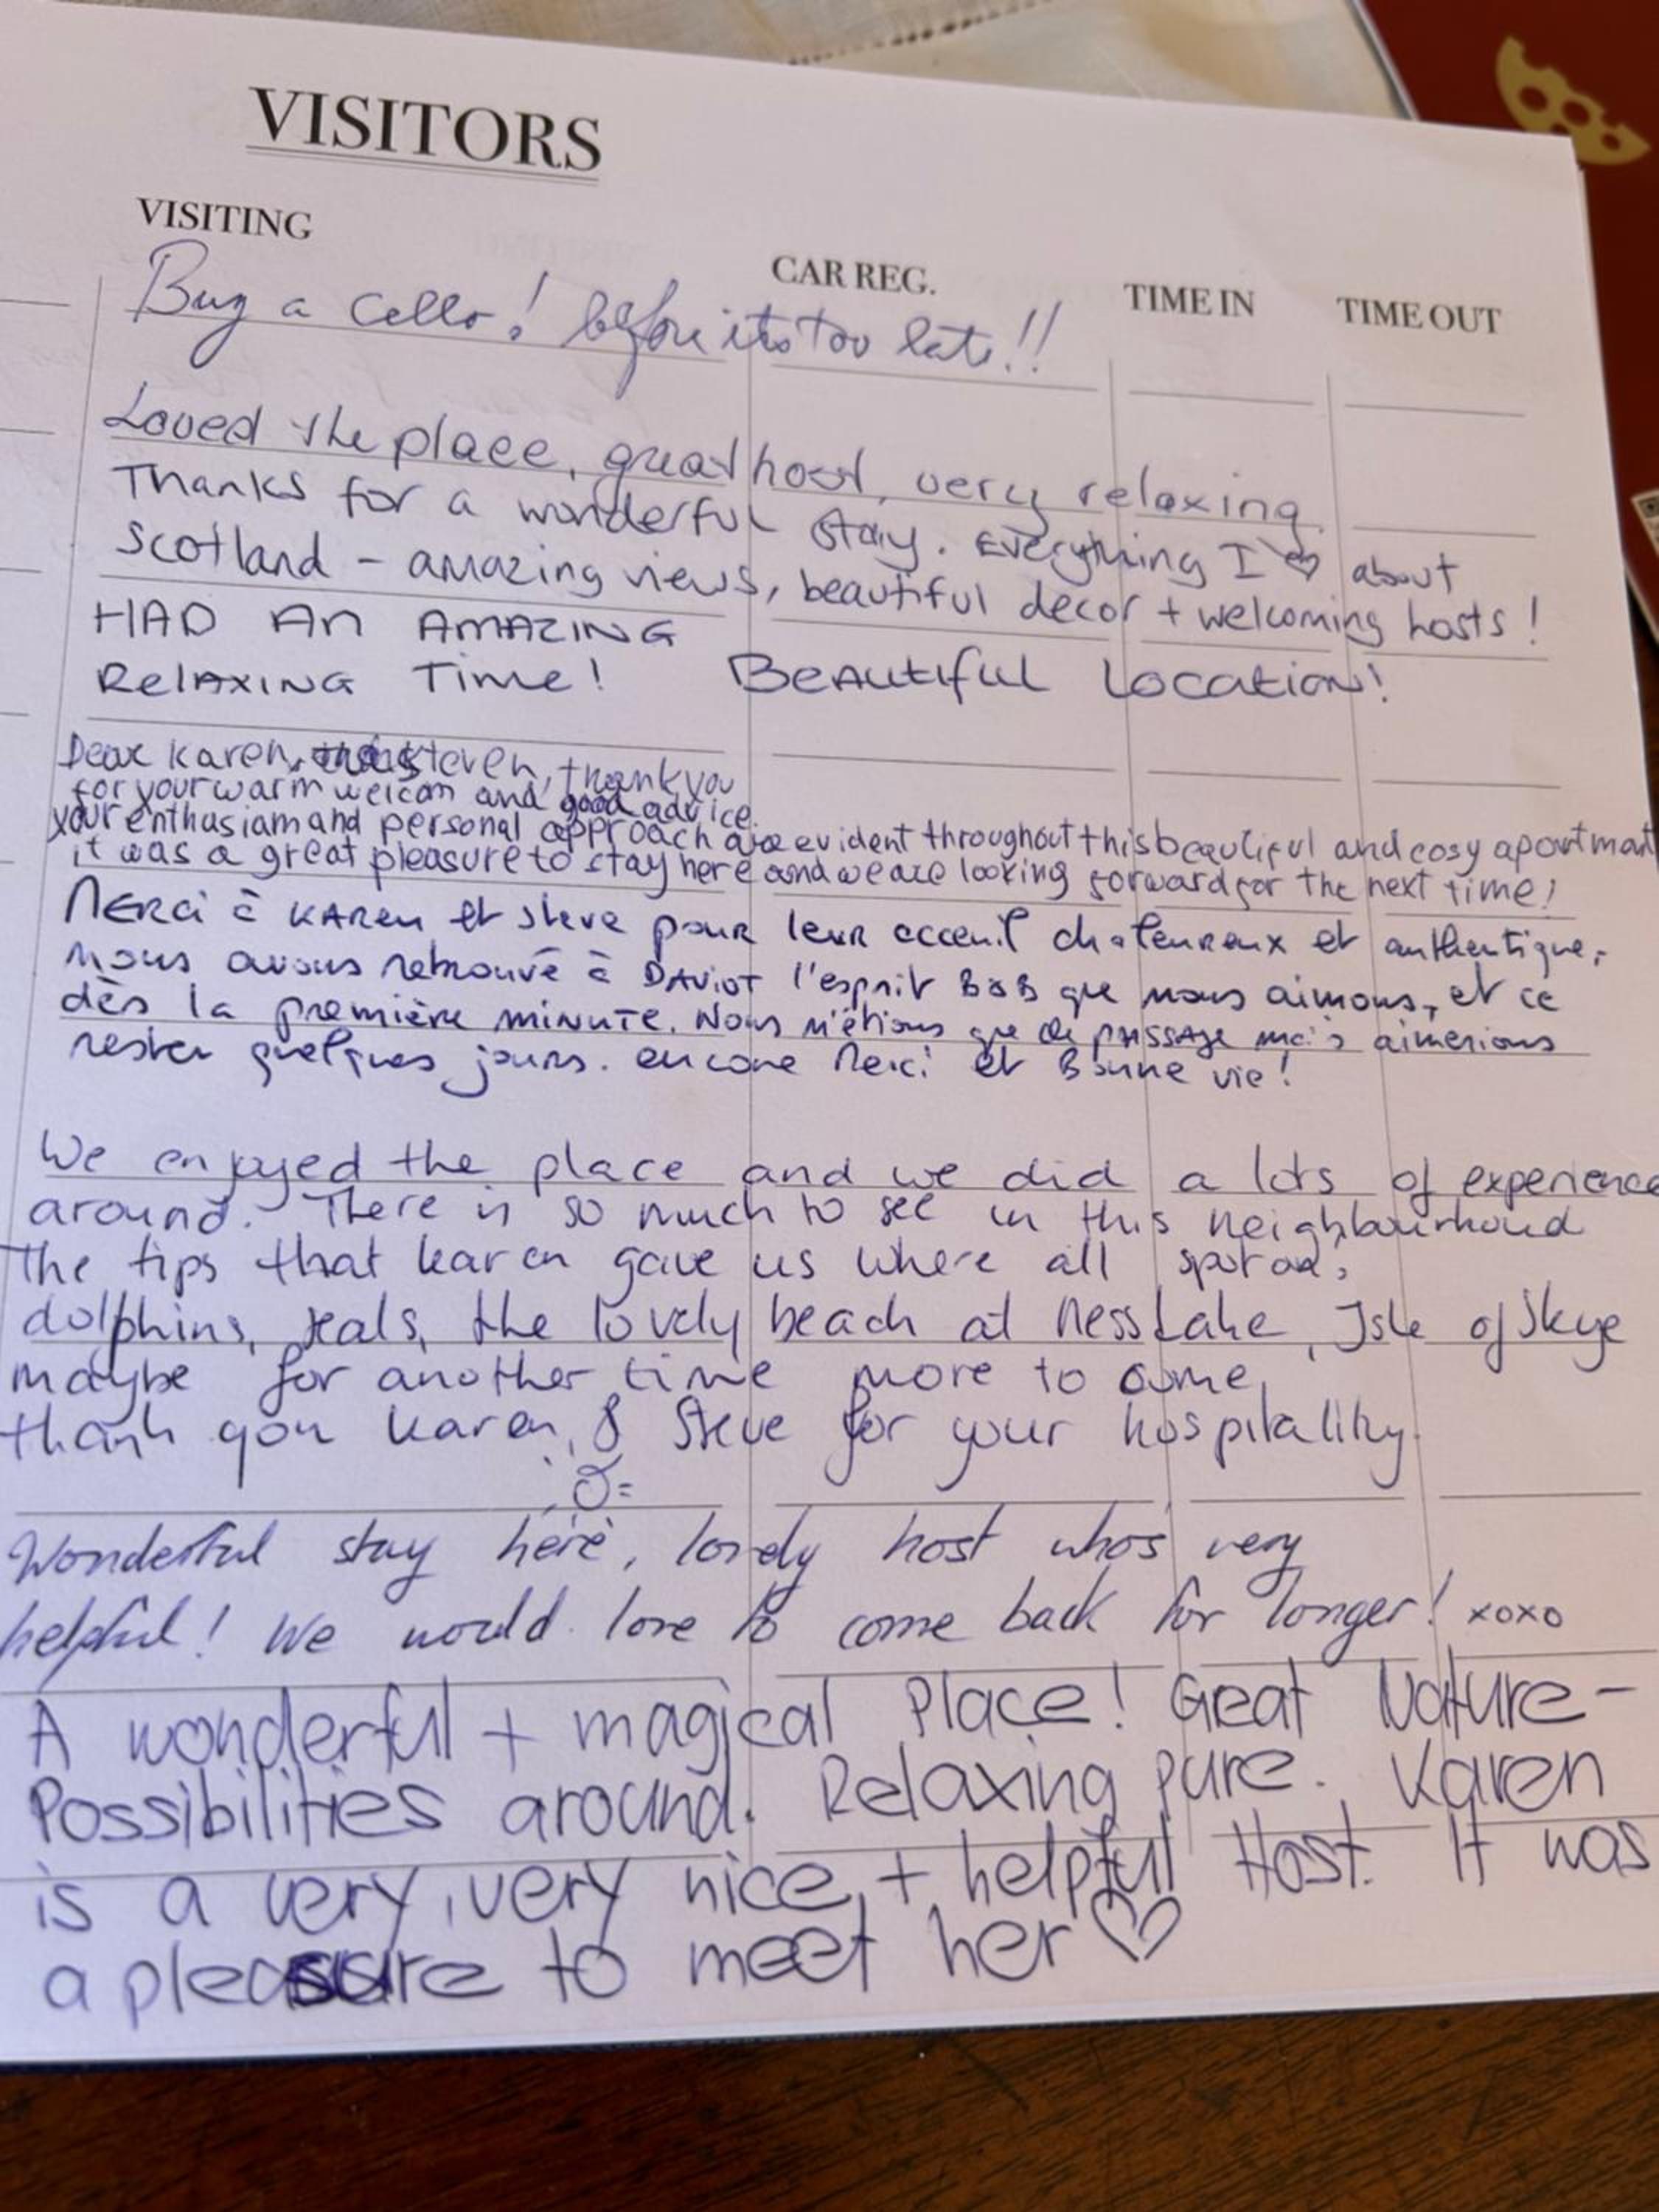 VISITORS
VISITING
CAR REG.
TIME IN
TIME OUT
Buy a cello! before its too late!!
Loved the place, great host, very relaxing.
Thanks for a wonderful stay. Everything I ♡ about
Scotland - amazing views, beautiful decor + welcoming hosts!
HAD An AMAZING
RelAXING Time! BeAutiful Location!
Dear Karen, steven, thank you
for your warm welcom and good advice.
your enthusiam and personal approach are evident throughout this beautiful and cosy apartment
it was a great pleasure to stay here and we are looking forward for the next time!
Merci à KAREN et Steve pour leur acceuil chaleureux et authentique,
Nous avons retrouvé à DAVIOT l'esprit B&B que nous aimons, et ce
dès la première minute. Nous n'étions que de passage mais aimerions
rester quelques jours. encore Merci et Bonne vie!
We enjoyed the place and we did a lots of experience
around. There is so much to see in this neighbourhood
The tips that Karen gave us where all spot on,
dolphins, seals, the lovely beach at Ness Lake, Isle of Skye
maybe for another time more to come,
thank you Karen, & Steve for your hospitality.
Wonderful stay here, lovely host who's very
helpful! We would love to come back for longer! xoxo
A wonderful + magical Place! Great Nature-
Possibilities around. Relaxing pure. Karen
is a very, very nice, + helpful Host. It was
a pleasure to meet her ♡